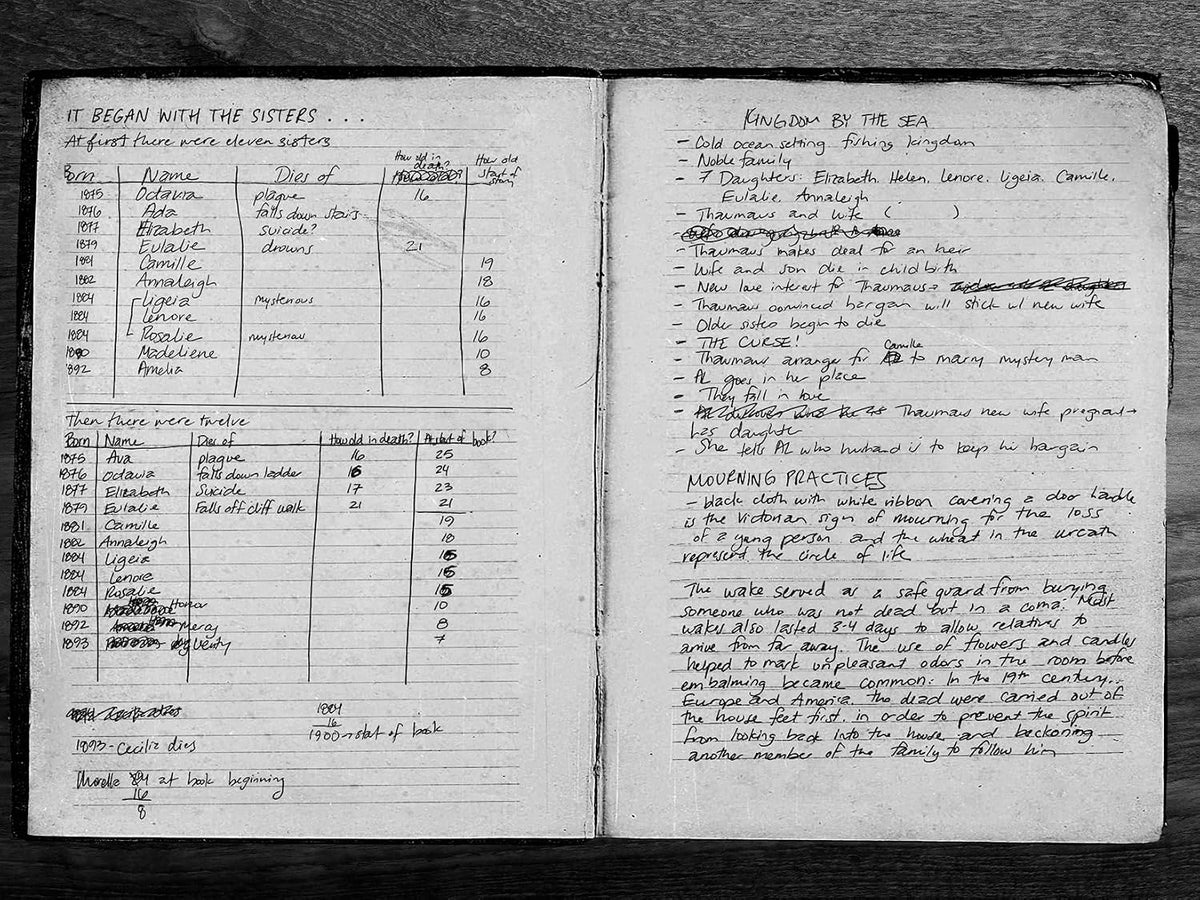 IT BEGAN WITH THE SISTERS . . .
At first there were eleven sisters
Born Name Dies of How old in death? How old start of story
1875 Octavia plague 16
1876 Ada falls down stairs
1877 Elizabeth suicide?
1879 Eulalie drowns 21
1881 Camille 19
1882 Annaleigh 18
1884 Ligeia mysterious 16
1884 Lenore 16
1884 Rosalie mysterious 16
1890 Madeliene 10
1892 Amelia 8
Then there were twelve
Born Name Dies of How old in death? At start of book?
1875 Ava plague 16 25
1876 Octavia falls down ladder 16 24
1877 Elizabeth Suicide 17 23
1879 Eulalie Falls off cliff walk 21 21
1881 Camille 19
1882 Annaleigh 18
1884 Ligeia 15
1884 Lenore 15
1884 Rosalie 15
1890 Honor 10
1892 Mercy 8
1893 Verity 7
1884
16
1900 → start of book
1893 - Cecilia dies
Morella at book beginning
16
8
KINGDOM BY THE SEA
- Cold ocean setting. fishing kingdom
- Noble family
- 7 Daughters: Elizabeth, Helen, Lenore, Ligeia, Camille,
Eulalie, Annaleigh
- Thaumaus and wife ( )
- Thaumaus makes deal for an heir
- Wife and son die in childbirth
- New love interest for Thaumaus →
- Thaumaus convinced bargain will stick w/ new wife
- Older sisters begin to die
- THE CURSE!
- Thaumaus arranges for Camille to marry mystery man
- AL goes in her place
- They fall in love
- Thaumaus new wife pregnant →
has daughter
- She tells AL who husband is to keep his bargain
MOURNING PRACTICES
- black cloth with white ribbon covering a door handle
is the Victorian sign of mourning for the loss
of a young person and the wheat in the wreath
represent the circle of life
The wake served as a safe guard from burying
someone who was not dead but in a coma. Most
wakes also lasted 3-4 days to allow relatives to
arrive from far away. The use of flowers and candles
helped to mask unpleasant odors in the room before
embalming became common. In the 19th century
Europe and America the dead were carried out of
the house feet first, in order to prevent the spirit
from looking back into the house and beckoning
another member of the family to follow him